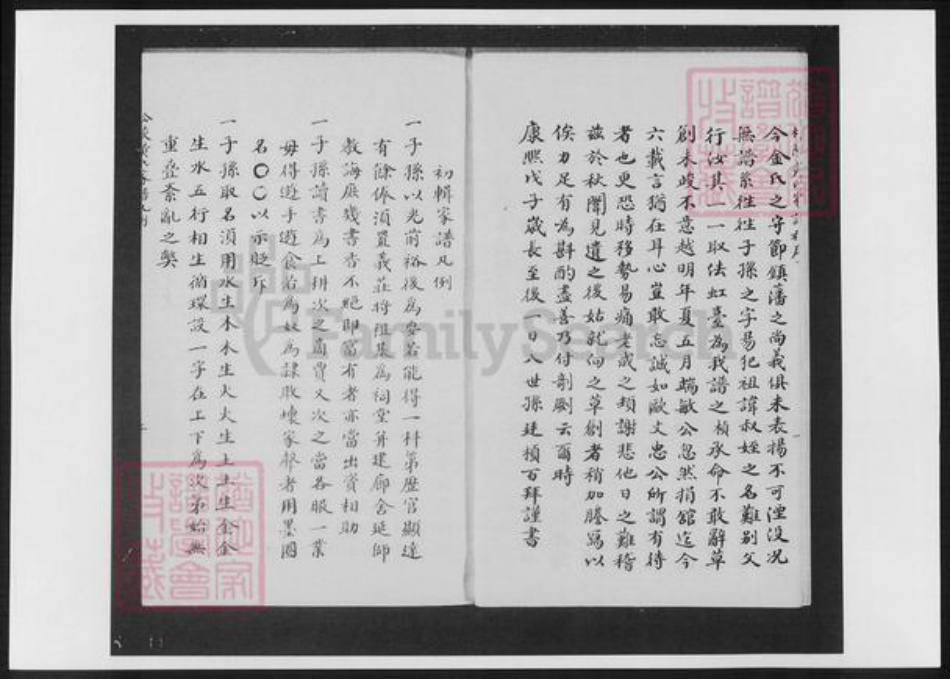 今金氏之守節鎮藩之尚義俱未表揚不可湮没况
無譜系徃徃子孫之字易犯祖諱叔姪之名難别父
行汝其一一取佉虹臺為我譜之楨承命不敢辭草
創未竣不意越明年夏五月端敏公忽然捐舘迄今
六載言猶在耳心豈敢忘誠如歐文忠公所謂有待
者也更恐時移勢易痛老成之頬謝悲他日之難稽
兹於秋闈見遺之後姑就向之草創者稍加謄寫以
俟力足有為斟酌盡善乃付剞劂云爾時
康熙戊子歲長至後一日八世孫廷楨百拜謹書
初輯家譜凡例
一子孫以光前裕後為要若能得一科第歷官顯達
有餘俸須置義莊將祖基為祠堂并建廊舍延師
教誨庶幾書香不絶即富有者亦當出資相助
一子孫讀書為上耕次之商賈又次之當各服一業
毋得遊手遊食若為奴為隸敗壊家聲者用墨圏
名〇〇以示貶斥
一子孫取名須用水生木木生火火生土土生金金
生水五行相生循環設一字在上下為次第始無
重叠紊亂之獘
FamilySearch